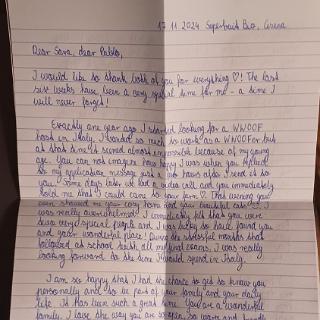 17.11.2024
Dear Sara, dear Pablo,
I would like to thank both of you for everything ♡! The last
six weeks have been a very special time for me - a time I
will never forget!
Exactly one year ago I started looking for a WWOOF
host in Italy. I wanted so much to work as a WWOOFer but
at that time it seemed almost impossible because of my young
age. You can not imagine how happy I was when you replied
to my application message just a two hours after I send it to
you. Some days later we had a video call and you immediately
told me that I could come to your farm ♡. That evening you
even showed me your cosy home and your beautiful cats. I
was really overwhelmed! I immediately felt that you were
two very special people and I was lucky to have found you
and your wonderful place! During the stressful months that
followed at school with all my final exams, I was really
looking forward to the time I would spend in Italy.
I am so happy that I had the chance to get to know you
personally and to be part of your family and your daily
life. It has been such a great time. You are a wonderful
family. I love the way you are open, so warm and